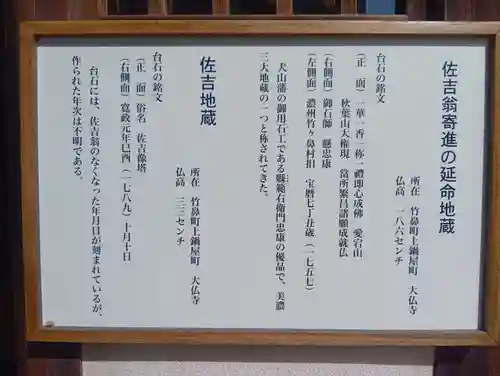 佐吉翁寄進の延命地蔵
所在　竹鼻町上鍋屋町　大仏寺
仏高　一八六センチ
台石の銘文
（正　面）一華一香一称一礼即心成佛　愛宕山
秋葉山大権現　當所繁昌諸願成就仏
（右側面）御石師　懸忠康
（左側面）濃州竹ヶ鼻村拍　宝暦七丁丑歳（一七五七）
犬山藩の御用石工である縣範右衛門忠康の優品で、美濃
三大地蔵の一つと称されてきた。
佐吉地蔵
所在　竹鼻町上鍋屋町　大仏寺
仏高　三三センチ
台石の銘文
（正　面）俗名　佐吉像塔
（右側面）寛政元年己酉（一七八九）十月十日
台石には、佐吉翁のなくなった年月日が刻まれているが、
作られた年次は不明である。